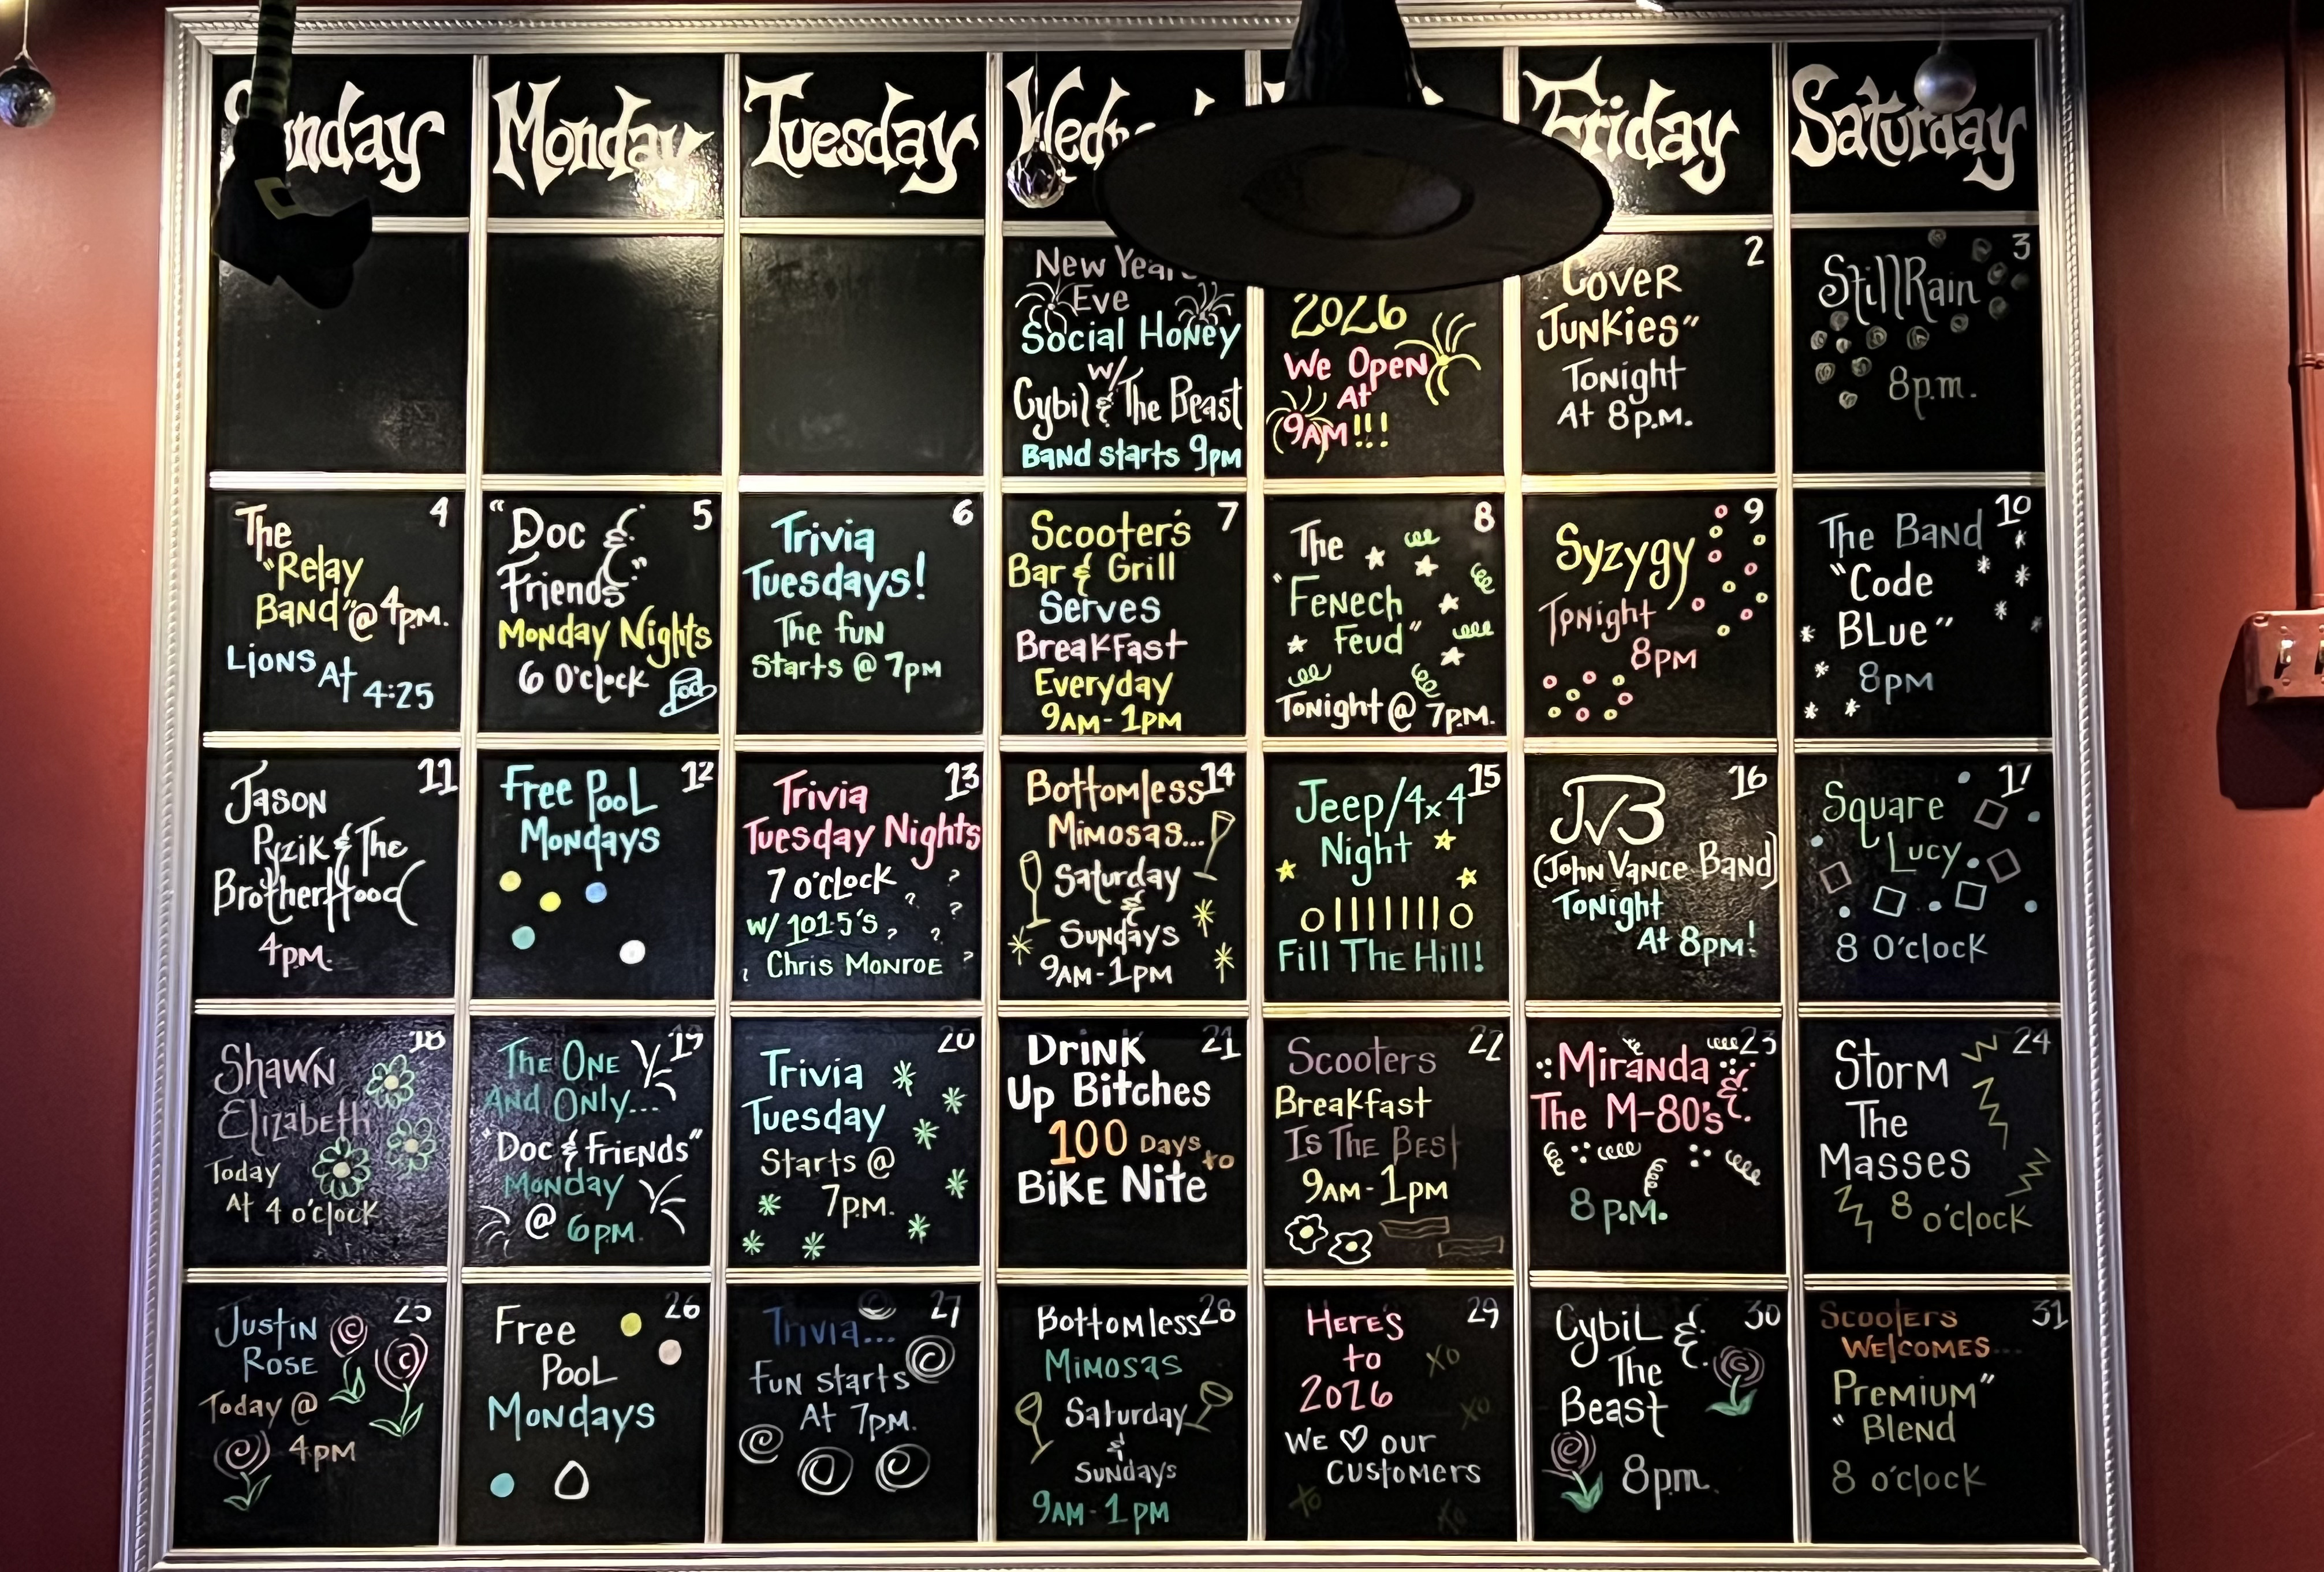 Sunday
Monday
Tuesday
Friday
Saturday
New Year's
Eve
Social Honey
w/
Cybil & The Beast
Band starts 9pm
2026
We Open
At
9AM!!!
2
Cover
Junkies"
Tonight
At 8p.m.
3
StillRain
8p.m.
4
The
"Relay
Band" @ 4p.m.
Lions At 4:25
5
"Doc &
Friends"
Monday Nights
6 O'clock
6
Trivia
Tuesdays!
The fun
Starts @ 7pm
7
Scooter's
Bar & Grill
Serves
Breakfast
Everyday
9AM-1PM
8
The
"Fenech
Feud"
Tonight @ 7p.m.
9
Syzygy
Tonight
8pm
10
The Band
"Code
Blue"
8pm
11
Jason
Pyzik & The
BrotherHood
4pm.
12
Free Pool
Mondays
13
Trivia
Tuesday Nights
7 o'clock
w/ 101.5's
Chris Monroe
14
Bottomless
Mimosas...
Saturday
&
Sundays
9AM-1PM
15
Jeep/4x4
Night
O|||||||O
Fill The Hill!
16
JVB
(John Vance Band)
Tonight
At 8pm!
17
Square
Lucy
8 O'clock
18
Shawn
Elizabeth
Today
At 4 o'clock
19
The One
And Only...
"Doc & Friends"
Monday
@ 6pm.
20
Trivia
Tuesday
Starts @
7p.m.
21
Drink
Up Bitches
100 Days to
Bike Nite
22
Scooters
Breakfast
Is The Best
9AM-1PM
23
Miranda &
The M-80's
8 P.M.
24
Storm
The
Masses
8 o'clock
25
Justin
Rose
Today @
4pm
26
Free
Pool
Mondays
27
Trivia...
Fun starts
At 7pm.
28
Bottomless
Mimosas
Saturday
&
Sundays
9AM-1PM
29
Here's
to
2026
XO
XO
We ♡ our
customers
XO
XO
30
Cybil &
The
Beast
8pm.
31
Scooters
Welcomes...
Premium"
" Blend
8 o'clock